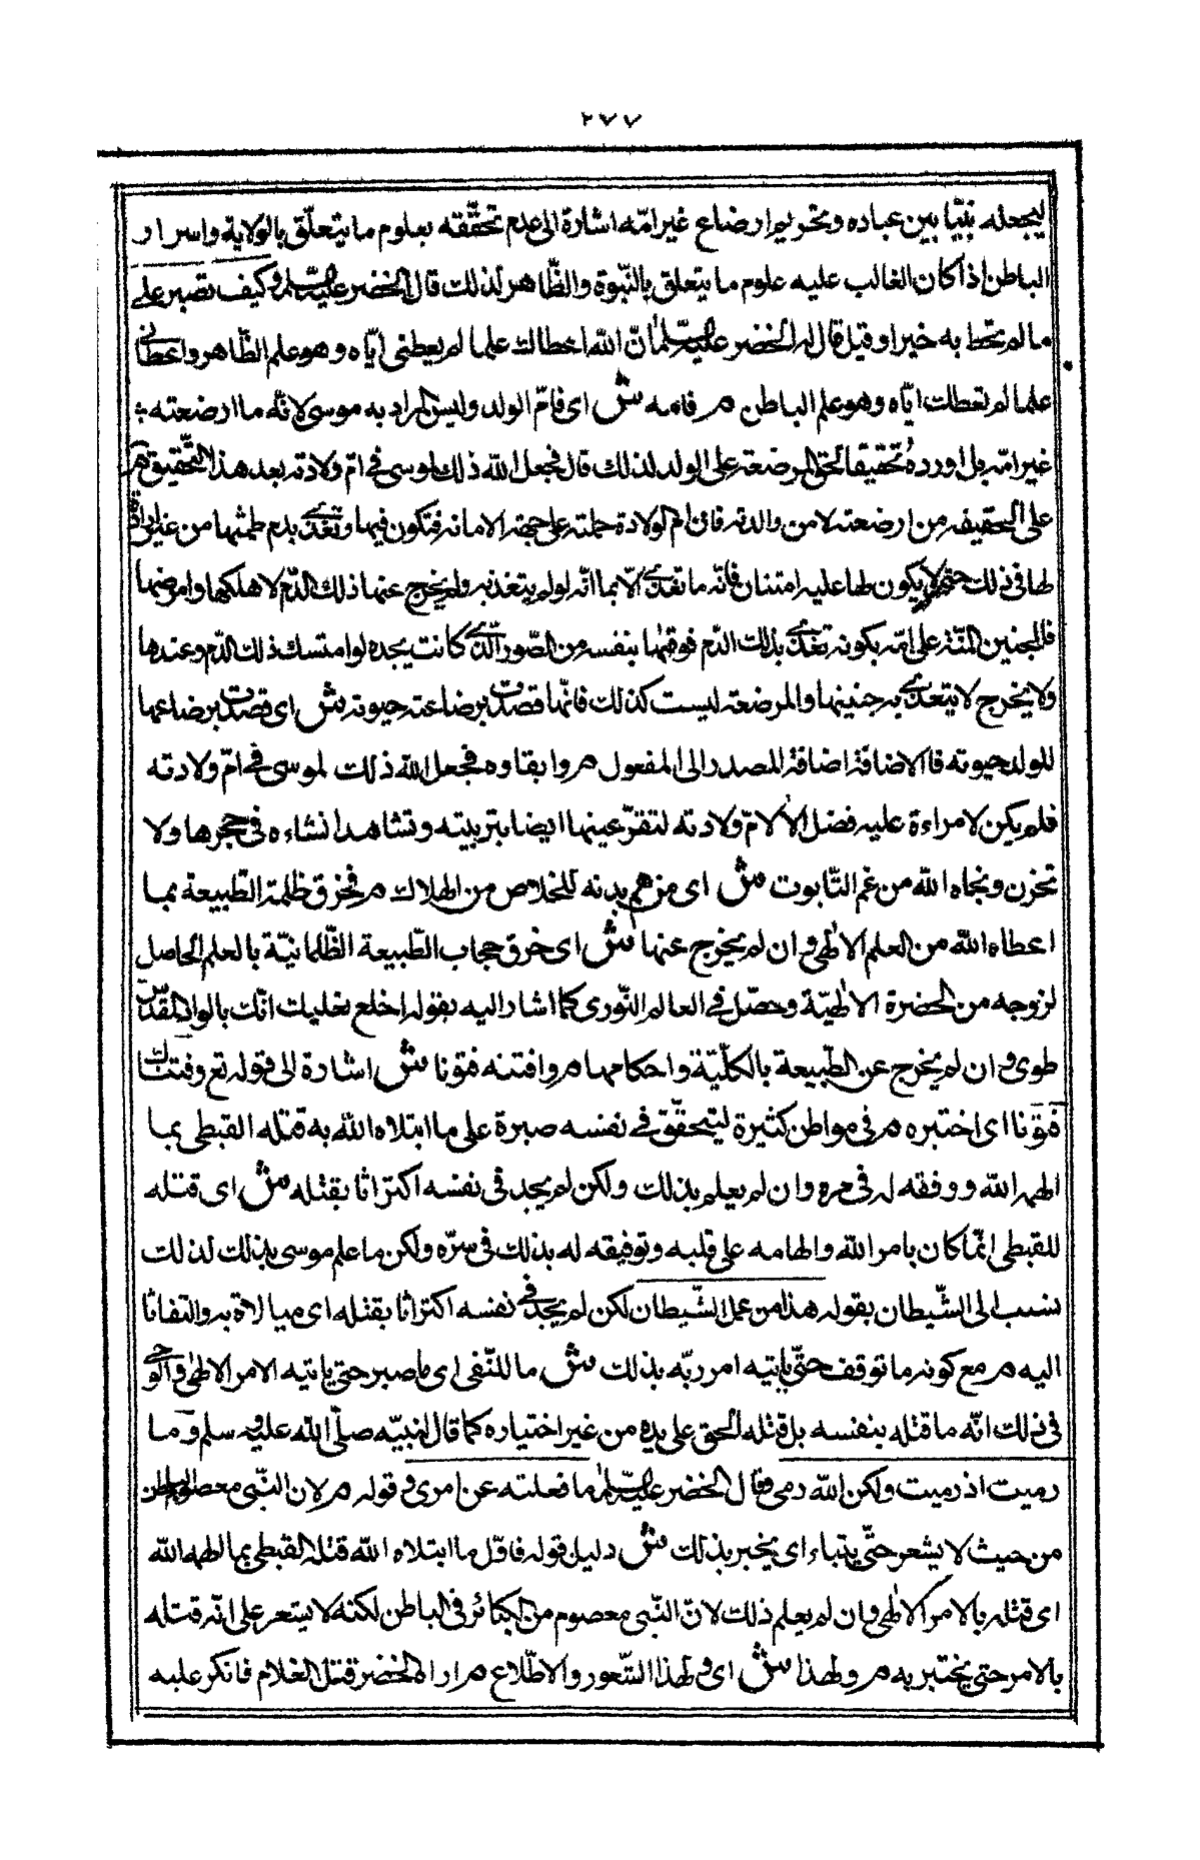 ٢٧٧
ليجعله نبيّا بين عباده وتحريم ارضاع غير امّه اشارة الى عدم تحقّقه بعلوم ما يتعلّق بالولاية واسرار
الباطن اذا كان الغالب عليه علوم ما يتعلق بالنّبوة والظّاهر لذلك قال الخضر عليه السّلم وكيف تصبر على
ما لم تحط به خبرا وقيل قال له الخضر عليه السّلم انّ الله اعطاك علما لم يعطنى ايّاه وهو علم الظّاهر واعطانى
علما لم يعطك ايّاه وهو علم الباطن م فامه ش اى فامّ الولد وليس المراد به موسى لانّه ما ارضعته
غير امّه بل اورده تحقيقا لحق المرضعة على الولد لذلك قال فجعل الله ذلك لموسى فى امّ ولادته بعد هذا التّحقيق م
على الحقيقه من ارضعته لا من ولدته فان ام الولادة حملته على جهة الامانة فتكون فيها وتغذّى بدم طمثها من غير ارادة
لها فى ذلك حتى لا يكون لها عليه امتنان فانّه ما تغذّى الّا بما انّه لو لم يتغذ به ولم يخرج عنها ذلك الدّم لاهلكها وامرضها
فللجنين المنّة على امّه بكونه تغذّى بذلك الدّم فوقيها بنفسه من الضّرر الّذى كانت يجده لو امتسك ذلك الدّم وعندها
ولا يخرج لا يتغذّى به جنينها والمرضعة ليست كذلك فانّها قصدت برضاعته حيوته ش اى قصدت برضاعها
للولد حيوته فالاضافة اضافة المصدر الى المفعول م وابقاءه فجعل الله ذلك لموسى فى امّ ولادته
فلم يكن لامراءة عليه فضل الّا لامّ ولادته لتقرّ عينها ايضا بتربيته وتشاهد انشاءه فى حجرها ولا
تحزن ونجاه الله من غم التّابوت ش اى من هم بدنه للخلاص من الهلاك م فخرق ظلمة الطّبيعة بما
اعطاه الله من العلم الالٰهى وان لم يخرج عنها ش اى خرق حجاب الطّبيعة الظّلمانيّة بالعلم الحاصل
لروحه من الحضرة الالٰهيّة وحصّل فى العالم النّورى كما اشار اليه بقوله اخلع نعليك انّك بالواد المقدّس
طوى وان لم يخرج عن الطّبيعة بالكلّيّة واحكامها م وافتنه فتونا ش اشارة الى قوله تع وفتنّاك
فتونا اى اختبره م فى مواطن كثيرة ليتحقّق فى نفسه صبره على ما ابتلاه الله به قتله القبطى بما
الهمه الله ووفقه له فى سره وان لم يعلم بذلك ولكن لم يجد فى نفسه اكتراثا بقتله ش اى قتله
للقبطى انّما كان بامر الله والهامه على قلبه وتوفيقه له بذلك فى سرّه ولكن ما علم موسى بذلك لذلك
نسب الى الشّيطان بقوله هذا من عمل الشّيطان لكن لم يجد فى نفسه اكتراثا بقتله اى مبالاة به والتفاتا
اليه م مع كونه ما توقف حتّى يأتيه امر ربّه بذلك ش ما للنّفى اى ما صبر حتى ياتيه الامر الالٰهى والوحى
فى ذلك انّه ما قتله بنفسه بل قتله الحق على يده من غير اختياره كما قال لنبيّه صلّى الله عليه وسلم وما
رميت اذ رميت ولكن الله رمى وقال الخضر عليه السّلم ما فعلته عن امرى وقوله م لان النّبى معصوم الباطن
من حيث لا يشعر حتّى ينباء اى يخبر بذلك ش دليل قوله فاوّل ما ابتلاه الله قتله القبطى بما الهمه الله
اى قتله بالامر الالٰهى وان لم يعلم ذلك لانّ النّبى معصوم من الكبائر فى الباطن لكنه لا يشعر على انّه قتله
بالامر حتى يختبر به م ولهذا ش اى ولهذا الشّعور والاطّلاع م اراه الخضر قتل الغلام فانكر عليه